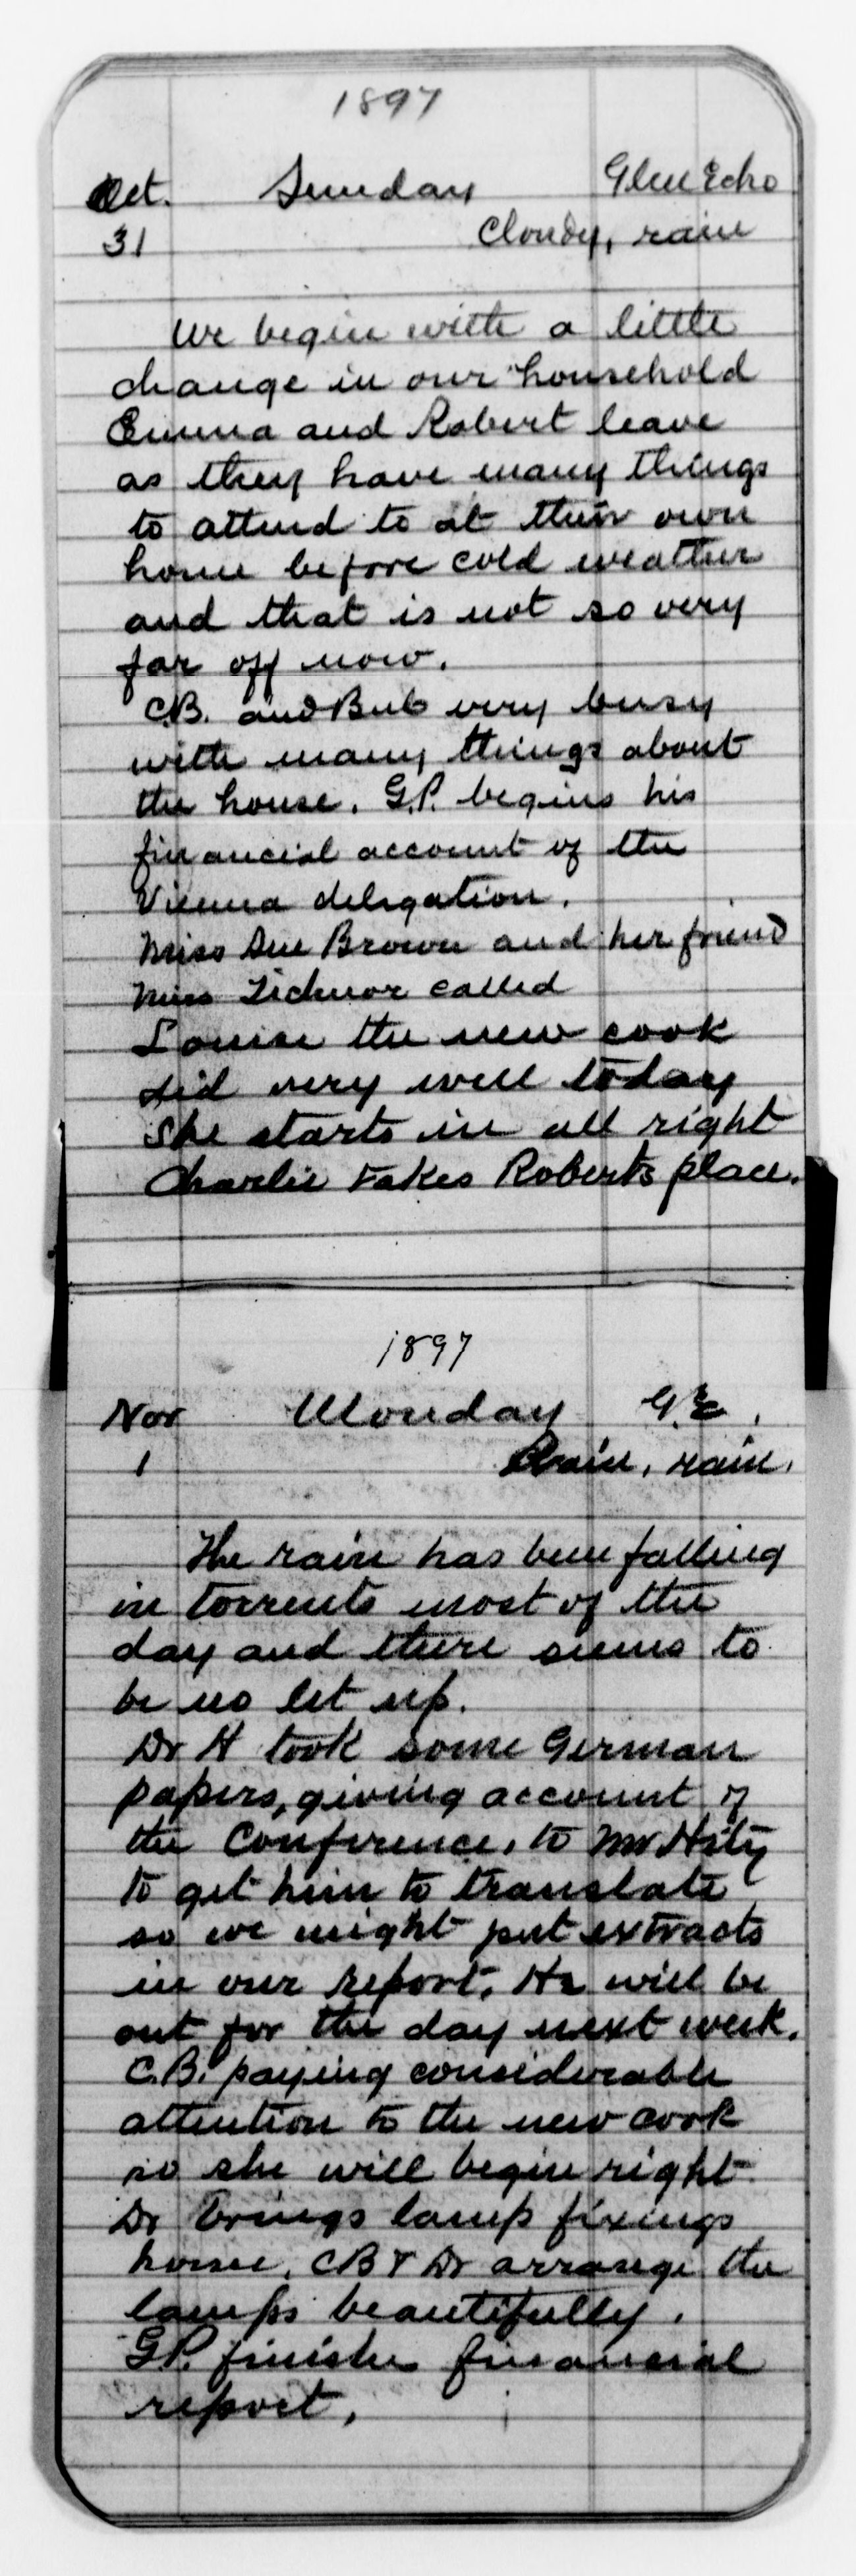 1897
Oct. Sunday Glen Echo
31 Cloudy, rain
We begin with a little
change in our household
Emma and Robert leave
as they have many things
to attend to at their own
home before cold weather
and that is not so very
far off now.
C.B. and Bub very busy
with many things about
the house. G.P. begins his
financial account of the
Vienna delegation.
Miss Sue Brown and her friend
Miss Ticknor called
Louise the new cook
did very well today
She starts in all right
Charlie takes Roberts place.
1897
Nov Monday G.E.
1 Rain, rain.
The rain has been falling
in torrents most of the
day and there seems to
be no let up.
Dr H took some German
papers, giving account of
the Conference, to Mr Hitz
to get him to translate
so we might put extracts
in our report. He will be
out for the day next week.
C.B. paying considerable
attention to the new cook
so she will begin right
Dr brings lamp fixings
home. CB & Dr arrange the
lamps beautifully.
G.P. finishes financial
report.